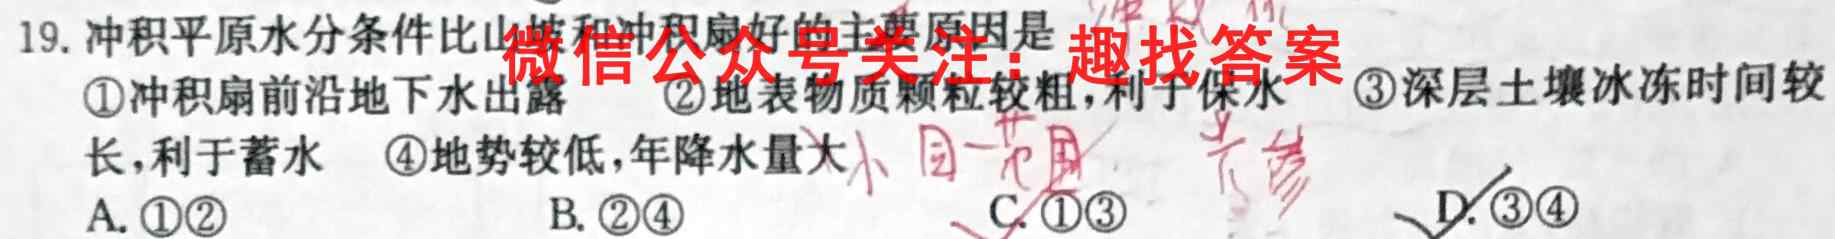 19. 冲积平原水分条件比山坡和冲积扇好的主要原因是
微信公众号关注：趣找答案
①冲积扇前沿地下水出露 ②地表物质颗粒较粗，利于保水 ③深层土壤冰冻时间较
长，利于蓄水 ④地势较低，年降水量大
小 同一范围
A. ①② B. ②④ C. ①③ D. ③④